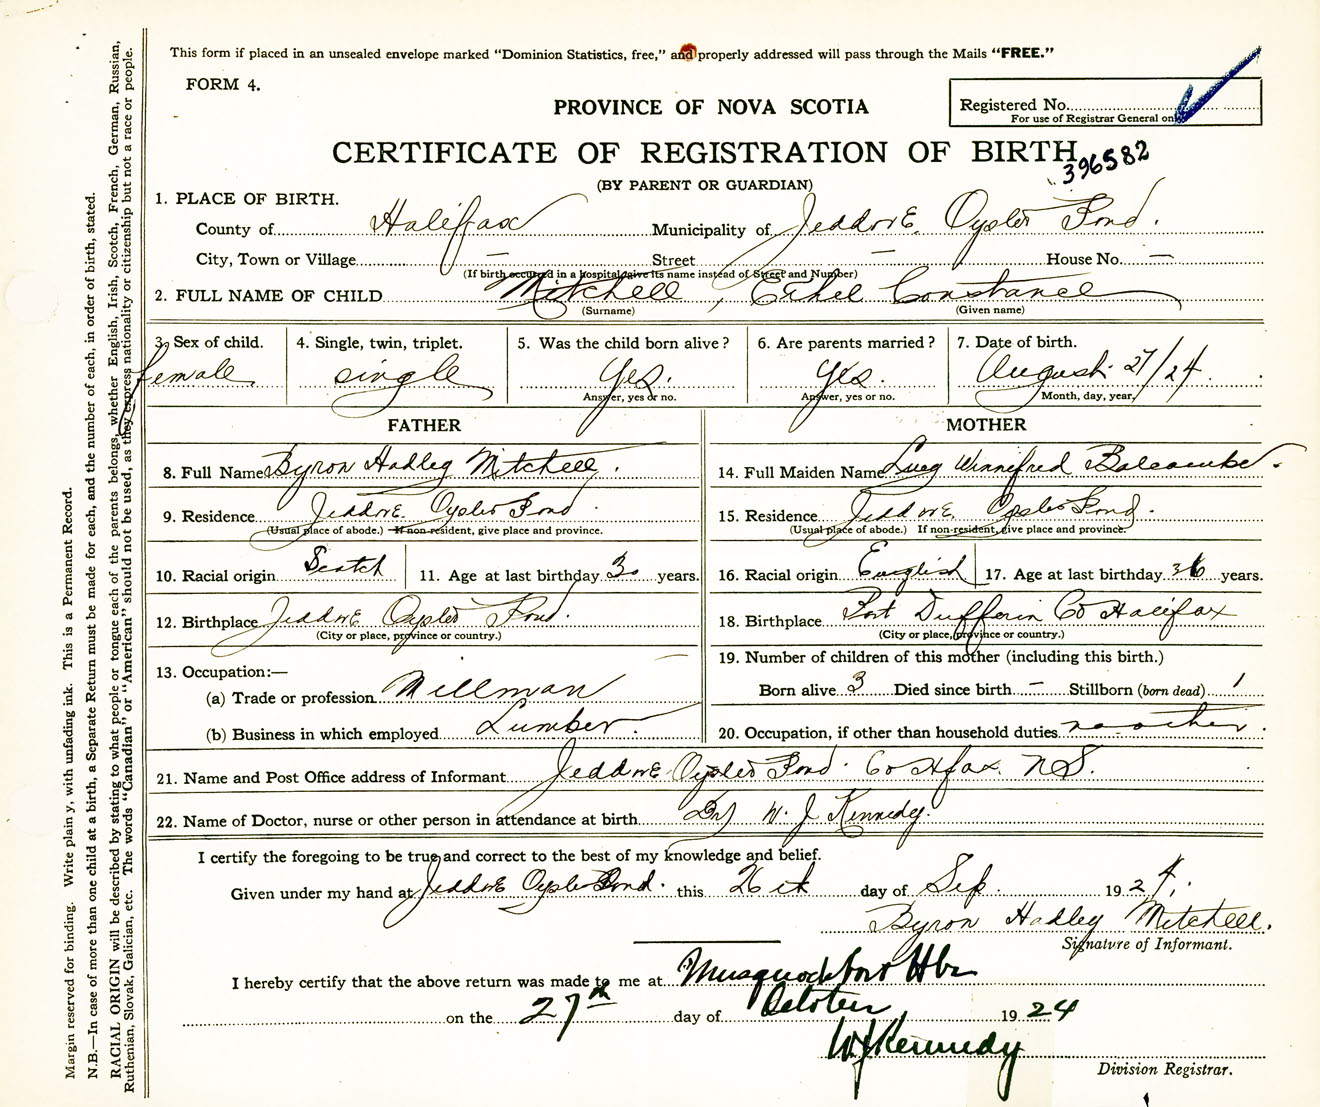 This form if placed in an unsealed envelope marked "Dominion Statistics, free," and properly addressed will pass through the Mails "FREE."
FORM 4.
PROVINCE OF NOVA SCOTIA
Registered No.
For use of Registrar General only
CERTIFICATE OF REGISTRATION OF BIRTH
396582
(BY PARENT OR GUARDIAN)
1. PLACE OF BIRTH.
County of Halifax Municipality of Jeddore Oyster Pond.
City, Town or Village — Street — House No. —
(If birth occurred in a hospital give its name instead of Street and Number)
2. FULL NAME OF CHILD Mitchell, Ethel Constance
(Surname) (Given name)
3. Sex of child. 4. Single, twin, triplet. 5. Was the child born alive? 6. Are parents married? 7. Date of birth.
female single Yes. Yes. August 27/24.
Answer, yes or no. Answer, yes or no. Month, day, year,
FATHER MOTHER
8. Full Name Byron Hadley Mitchell. 14. Full Maiden Name Lucy Winnefred Balcombe.
9. Residence Jeddore Oyster Pond 15. Residence Jeddore Oyster Pond.
(Usual place of abode.) If non-resident, give place and province. (Usual place of abode.) If non-resident, give place and province.
10. Racial origin Scotch 11. Age at last birthday 30 years. 16. Racial origin English 17. Age at last birthday 36 years.
12. Birthplace Jeddore Oyster Pond. 18. Birthplace Port Dufferin Co Halifax
(City or place, province or country.) (City or place, province or country.)
13. Occupation:— 19. Number of children of this mother (including this birth.)
(a) Trade or profession Millman Born alive 3 Died since birth — Stillborn (born dead) 1
(b) Business in which employed Lumber. 20. Occupation, if other than household duties no other
21. Name and Post Office address of Informant Jeddore Oyster Pond. Co Hfax. N.S.
22. Name of Doctor, nurse or other person in attendance at birth Dr W. J Kennedy.
I certify the foregoing to be true and correct to the best of my knowledge and belief.
Given under my hand at Jeddore Oyster Pond. this 26th day of Sep. 1924.
Byron Hadley Mitchell.
Signature of Informant.
I hereby certify that the above return was made to me at Musquodoboit Hbr
on the 27th day of October 1924
WJ Kennedy
Division Registrar.
Margin reserved for binding. Write plain y, with unfading ink. This is a Permanent Record.
N.B.—In case of more than one child at a birth, a Separate Return must be made for each, and the number of each, in order of birth, stated.
RACIAL ORIGIN will be described by stating to what people or tongue each of the parents belongs, whether English, Irish, Scotch, French, German, Russian,
Ruthenian, Slovak, Galician, etc. The words "Canadian" or "American" should not be used, as they express nationality or citizenship but not a race or people.